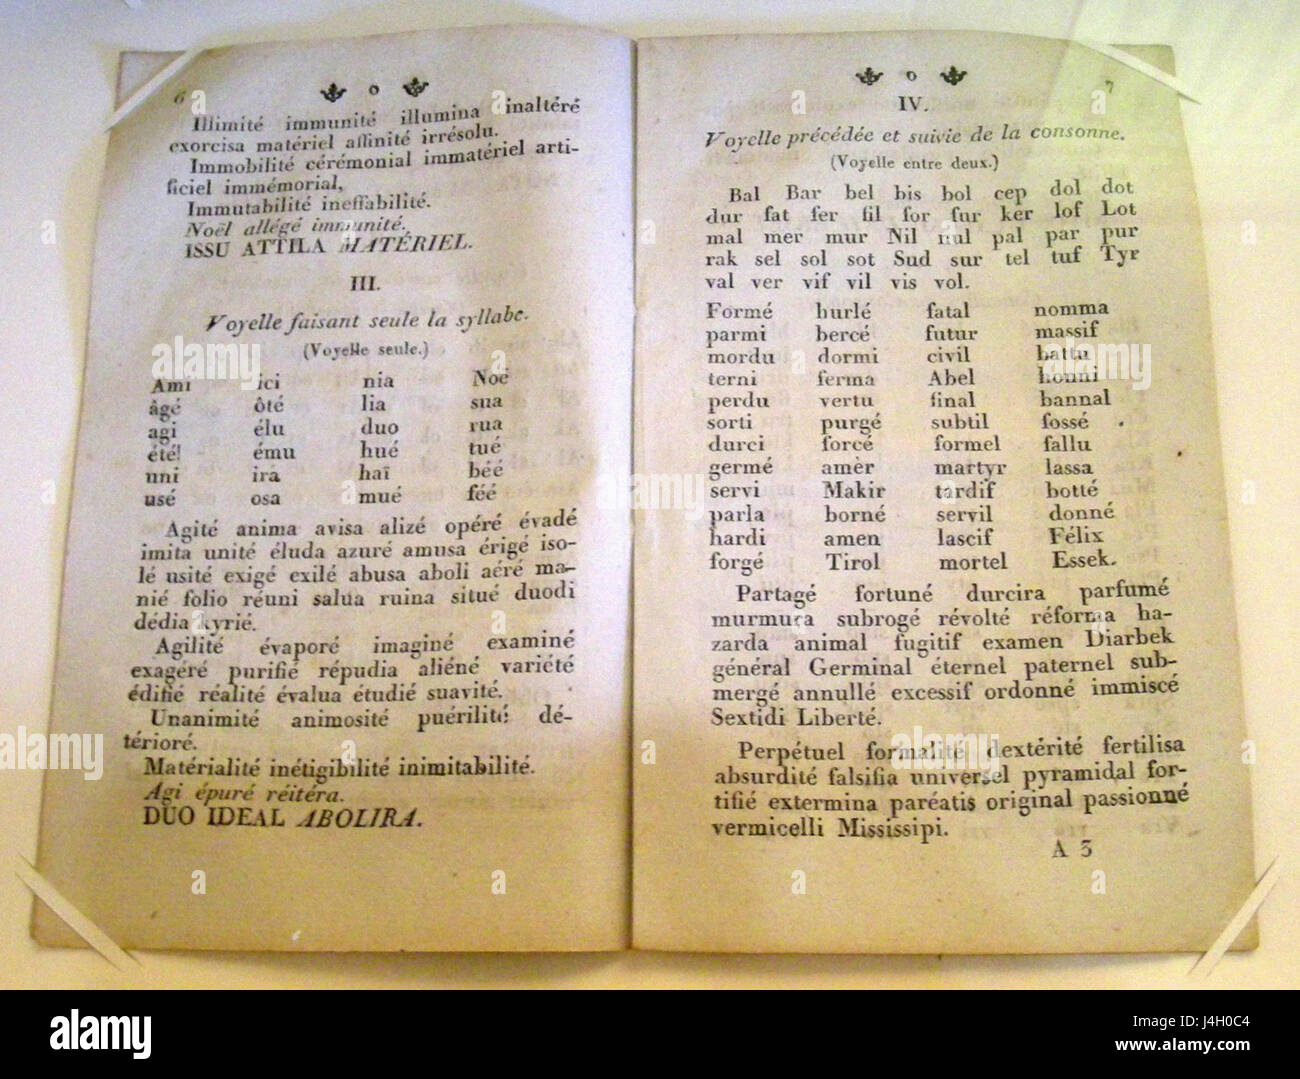 6 o
Illimité immunité illumina inaltéré
exorcisa matériel affinité irrésolu.
Immobilité cérémonial immatériel arti-
ficiel immémorial,
Immutabilité ineffabilité.
Noël allégé immunité.
ISSU ATTILA MATÉRIEL.
III.
Voyelle faisant seule la syllabe.
(Voyelle seule.)
Ami ici nia Noé
âgé ôté lia sua
agi élu duo rua
été! ému hué tué
uni ira haï béé
usé osa mué féé
Agité anima avisa alizé opéré évadé
imita unité éluda azuré amusa érigé iso-
lé usité exigé exilé abusa aboli aéré ma-
nié folio réuni salua ruina situé duodi
dédia kyrié.
Agilité évaporé imaginé examiné
exagéré purifié répudia aliéné variété
édifié réalité évalua étudié suavité.
Unanimité animosité puérilité dé-
térioré.
Matérialité inétigibilité inimitabilité.
Agi épuré réitéra.
DUO IDEAL ABOLIRA.
o 7
IV.
Voyelle précédée et suivie de la consonne.
(Voyelle entre deux.)
Bal Bar bel bis bol cep dol dot
dur fat fer fil for fur ker lof Lot
mal mer mur Nil nul pal par pur
rak sel sol sot Sud sur tel tuf Tyr
val ver vif vil vis vol.
Formé hurlé fatal nomma
parmi bercé futur massif
mordu dormi civil battu
terni ferma Abel honni
perdu vertu final bannal
sorti purgé subtil fossé
durci forcé formel fallu
germé amèr martyr lassa
servi Makir tardif botté
parla borné servil donné
hardi amen lascif Félix
forgé Tirol mortel Essek.
Partagé fortuné durcira parfumé
murmura subrogé révolté réforma ha-
zarda animal fugitif examen Diarbek
général Germinal éternel paternel sub-
mergé annullé excessif ordonné immiscé
Sextidi Liberté.
Perpétuel formalité dextérité fertilisa
absurdité falsifia universel pyramidal for-
tifié extermina paréatis original passionné
vermicelli Mississipi.
A 3
alamy
Image ID: J4H0C4
www.alamy.com